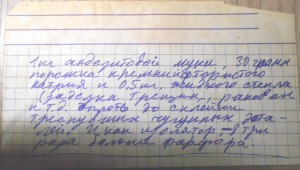 1 кг андезитовой муки, 30 грамм
порошка кремнийфтористого
натрия и 0,5 кг. жидкого стекла
(заделка трещин, раковин
и т.д. вплоть до склейки
треснувших чугунных дета-
лей. И как изолятор – в три
раза больше фарфора.